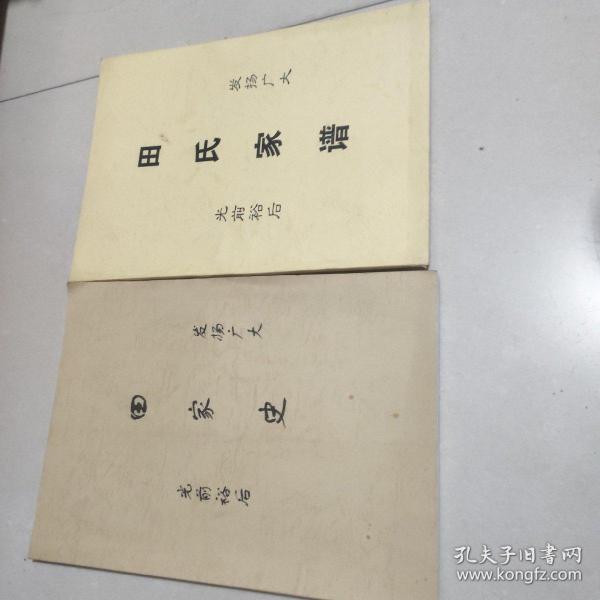 发扬广大
田氏家谱
光前裕后
发扬广大
田家史
光前裕后
孔夫子旧书网
www.kongfz.com